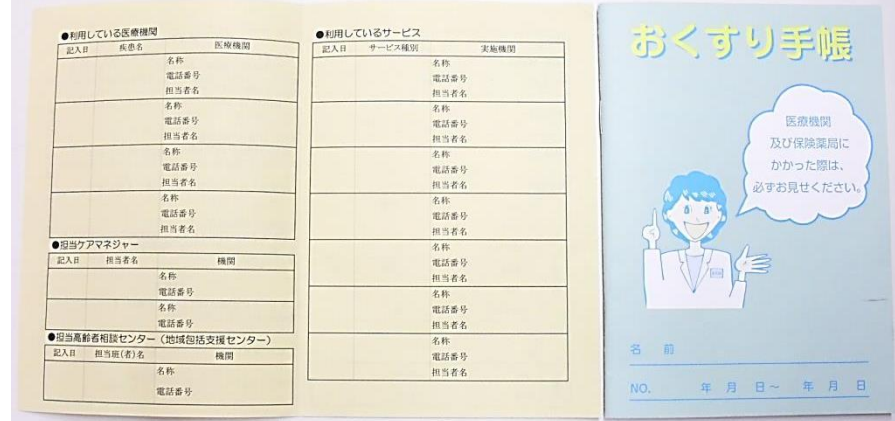 ●利用している医療機関
記入日 疾患名 医療機関
名称
電話番号
担当者名
名称
電話番号
担当者名
名称
電話番号
担当者名
名称
電話番号
担当者名
●担当ケアマネジャー
記入日 担当者名 機関
名称
電話番号
名称
電話番号
●担当高齢者相談センター(地域包括支援センター)
記入日 担当班(者)名 機関
名称
電話番号
●利用しているサービス
記入日 サービス種別 実施機関
名称
電話番号
担当者名
名称
電話番号
担当者名
名称
電話番号
担当者名
名称
電話番号
担当者名
名称
電話番号
担当者名
名称
電話番号
担当者名
名称
電話番号
担当者名
おくすり手帳
医療機関
及び保険薬局に
かかった際は、
必ずお見せください。
名 前
NO. 年 月 日~ 年 月 日